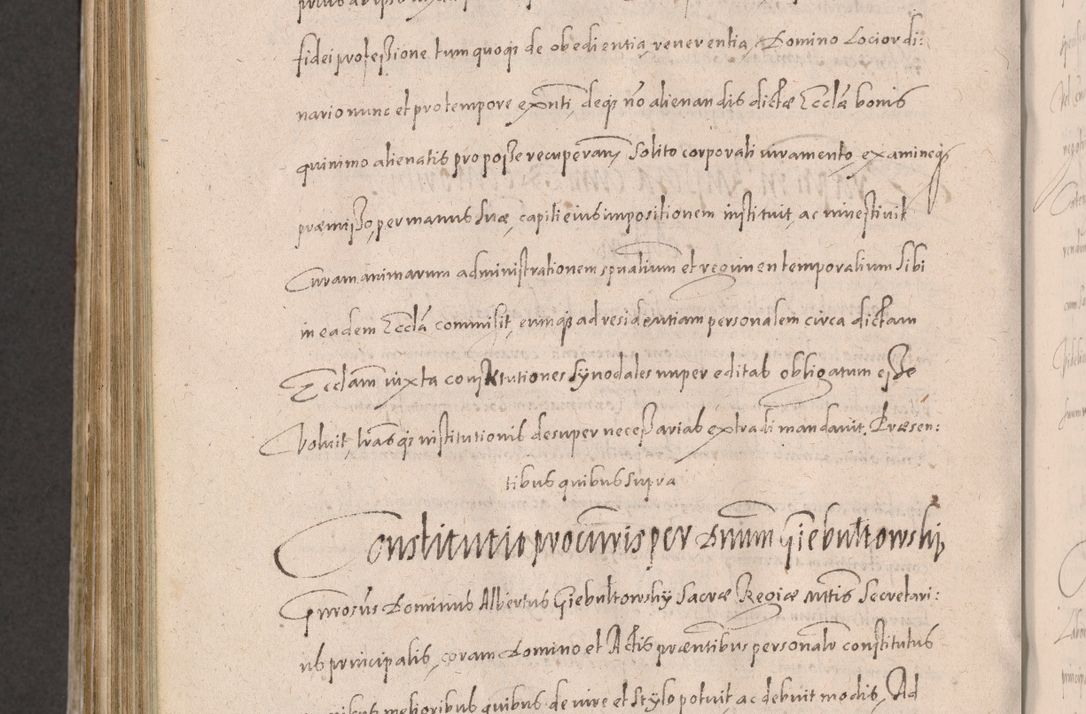 fidei profeßione tum quoqз de obedientia, reverentia, Domino Loci ordi:
nario nunc et pro tempore exñti, deqз nō alienandis dictæ Eccłæ bonis
quinimo alienatis pro poße recuperan̄ Solito corporali iuramento, examineqз
præmißo, per manus Suæ, capiti eius impositionem instituit, ac investivit
Curam animarum administrationem sp̄ualium et regimen temporalium Sibi
in eadem Eccła commisit, eumqз ad residentiam personalem circa dictam
Eccłam iuxta constitutiones Synodales nuper editas obligatum eße
Voluit, lr̄asqз institutionis desuper neceßarias extradi mandavit. Præsen:
tibus quibus Supra
Constitutio procur̄is per Dnum Giebułtowskij
Gn̄rosus Dominus Albertus Giebułtowskÿ Sacræ Regiæ Mt̄tis Secretari:
us principalis, coram Domino et Actis præn̄tibus personalr̄ constitutus
melioribus quibus de iure et Stylo potuit, ac debuit modis, Ad